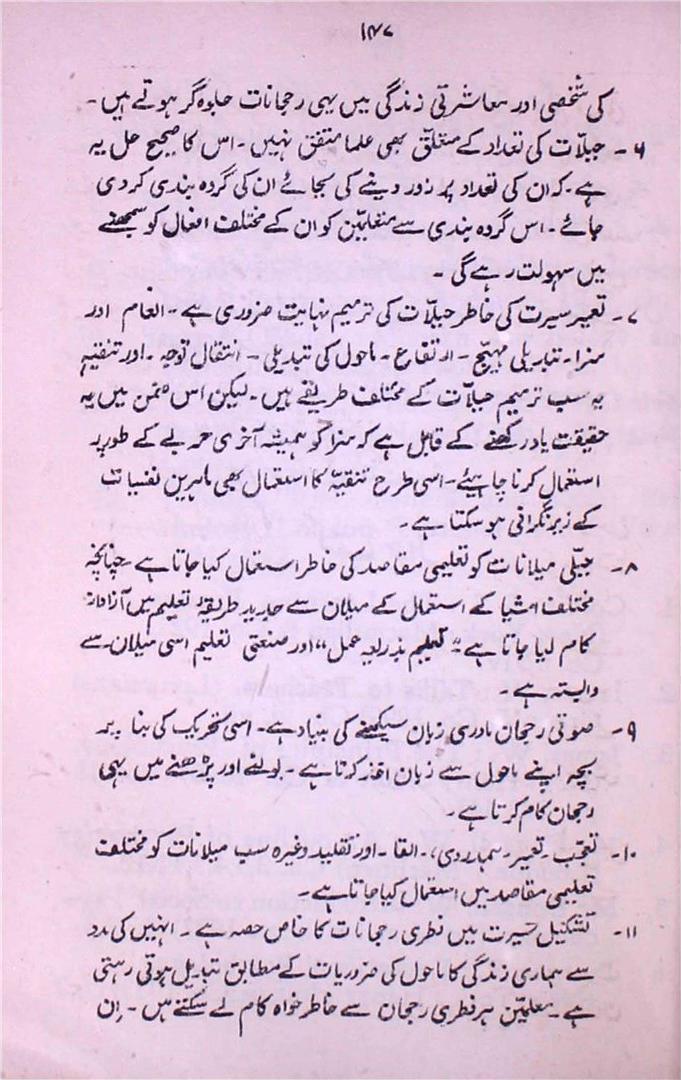 ۱۴۷
کی شخصی اور معاشرتی زندگی میں یہی رجحانات جلوہ گر ہوتے ہیں۔
۶۔ جبلّات کی تعداد کے متعلق بھی علما متفق نہیں۔ اس کا صحیح حل یہ
ہے۔ کہ ان کی تعداد پر زور دینے کی بجائے ان کی گروہ بندی کر دی
جائے۔ اس گروہ بندی سے متعلّمین کو ان کے مختلف افعال کو سمجھنے
میں سہولت رہے گی۔
۷۔ تعمیر سیرت کی خاطر جبلّات کی ترمیم نہایت ضروری ہے۔ انعام اور
سزا۔ تبدیلی مہیج۔ ارتفاع۔ ماحول کی تبدیلی۔ انتقال توجہ۔ اور تنقیہ
یہ سب ترمیم جبلّات کے مختلف طریقے ہیں۔ لیکن اس ضمن میں یہ
حقیقت یاد رکھنے کے قابل ہے کہ سزا کو ہمیشہ آخری حربے کے طور پر
استعمال کرنا چاہیئے۔ اسی طرح تنقیہ کا استعمال بھی ماہرین نفسیات
کے زیر نگرانی ہو سکتا ہے۔
۸۔ جبلّی میلانات کو تعلیمی مقاصد کی خاطر استعمال کیا جاتا ہے چنانچہ
مختلف اشیا کے استعمال کے میلان سے جدید طریقۂ تعلیم میں آزادانہ
کام لیا جاتا ہے "تعلیم بذریعہ عمل" اور صنعتی تعلیم اسی میلان سے
وابستہ ہے۔
۹۔ صوتی رجحان مادری زبان سیکھنے کی بنیاد ہے۔ اسی تحریک کی بنا پر
بچہ اپنے ماحول سے زبان اخذ کرتا ہے۔ بولنے اور پڑھنے میں یہی
رجحان کام کرتا ہے۔
۱۰۔ تعجب۔ تعمیر۔ ہمدردی، القا۔ اور تقلید وغیرہ سب میلانات کو مختلف
تعلیمی مقاصد میں استعمال کیا جاتا ہے۔
۱۱۔ تشکیل سیرت میں فطری رجحانات کا خاص حصہ ہے۔ انہیں کی مدد
سے ہماری زندگی کا ماحول کی ضروریات کے مطابق تبدیل ہوتی رہتی
ہے۔ معلمین ہر فطری رجحان سے خاطر خواہ کام لے سکتے ہیں۔ اِن